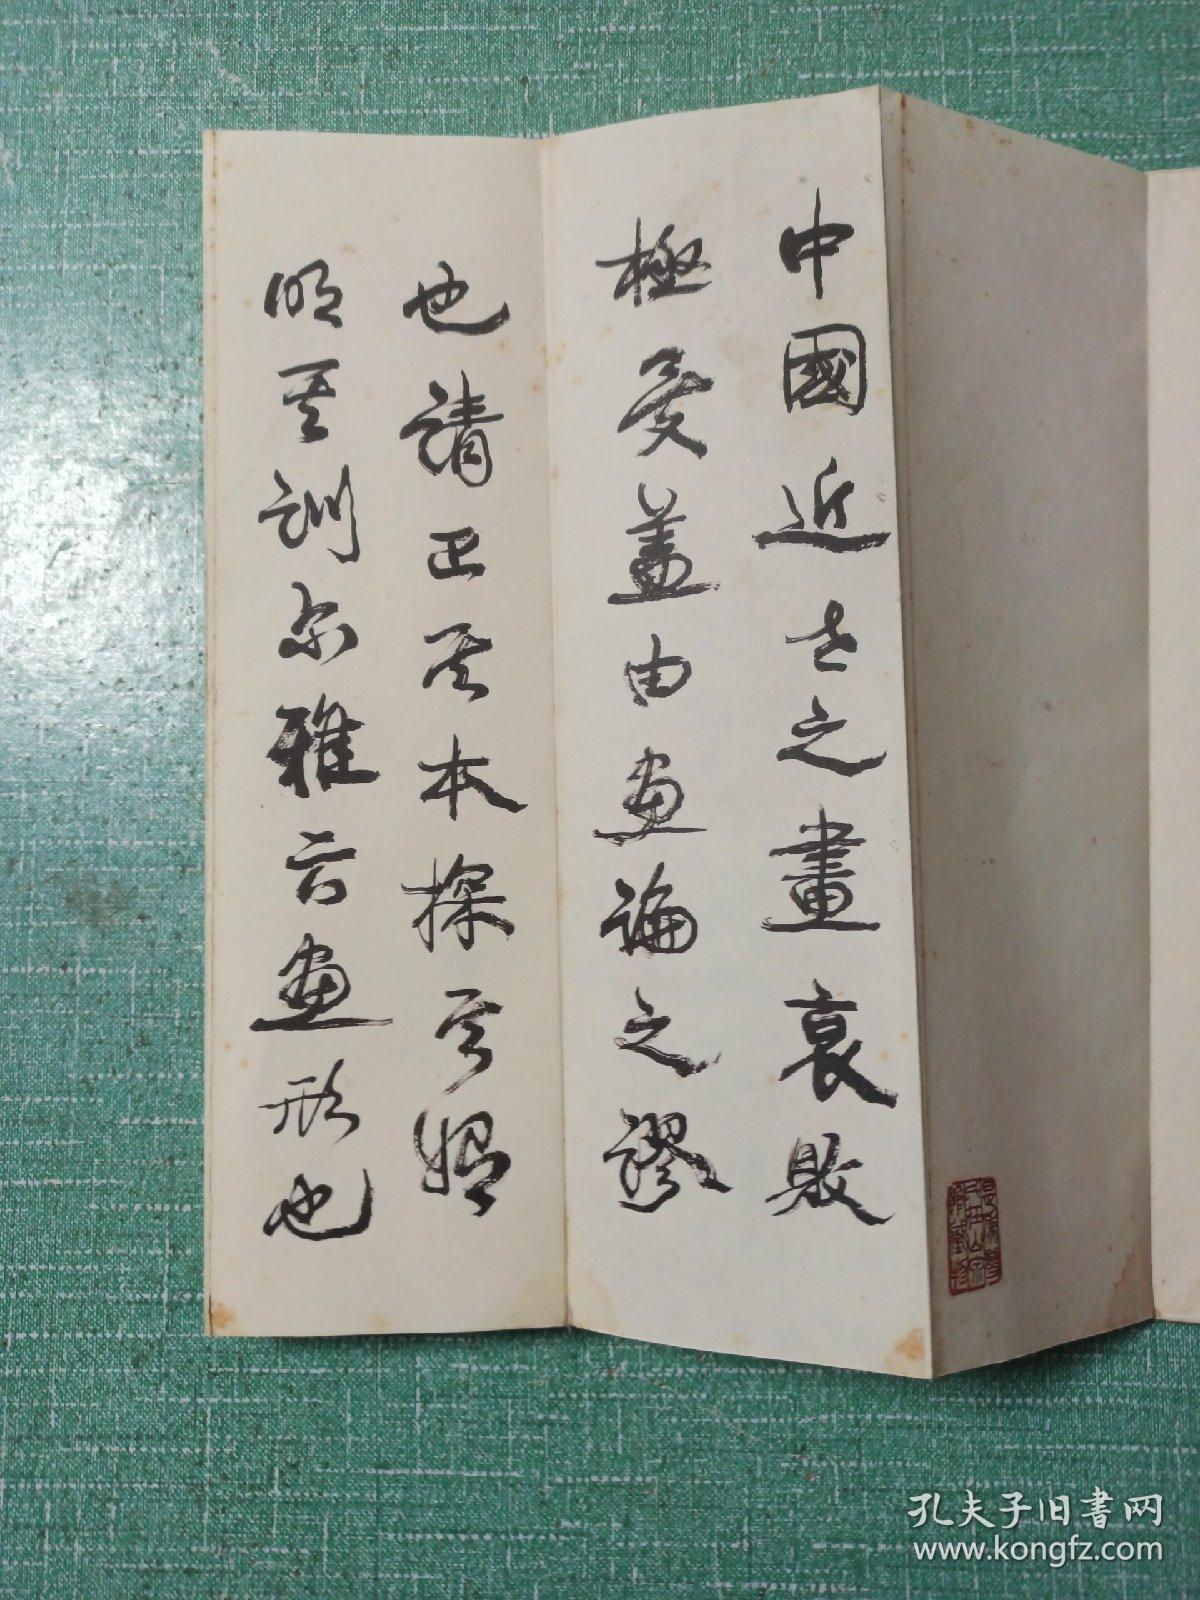 中國近世之畫衰敗
極矣盖由画論之謬
也請正其本探其始
明其訓尔雅云画形也
孔夫子旧書网
www.kongfz.com